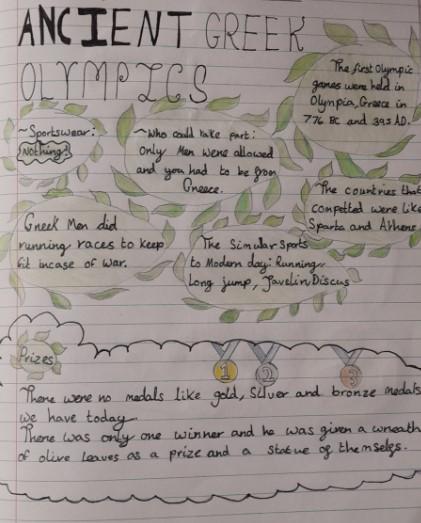 ANCIENT GREEK
OLYMPICS
The first Olympic
games were held in
Olympia, Greece in
776 BC and 393 AD.
~Sportswear:
Nothing!
~Who could take part:
Only Men were allowed
and you had to be from
Greece.
The countries that
competted were like
Sparta and Athens
Greek Men did
running races to keep
fit incase of war.
The Simular Sports
to Modern day: Running
Long jump, Javelin, Discus
Prizes
1 2 3
There were no medals like gold, Silver and bronze medals
we have today.
There was only one winner and he was given a wreath
of olive leaves as a prize and a statue of themselfs.